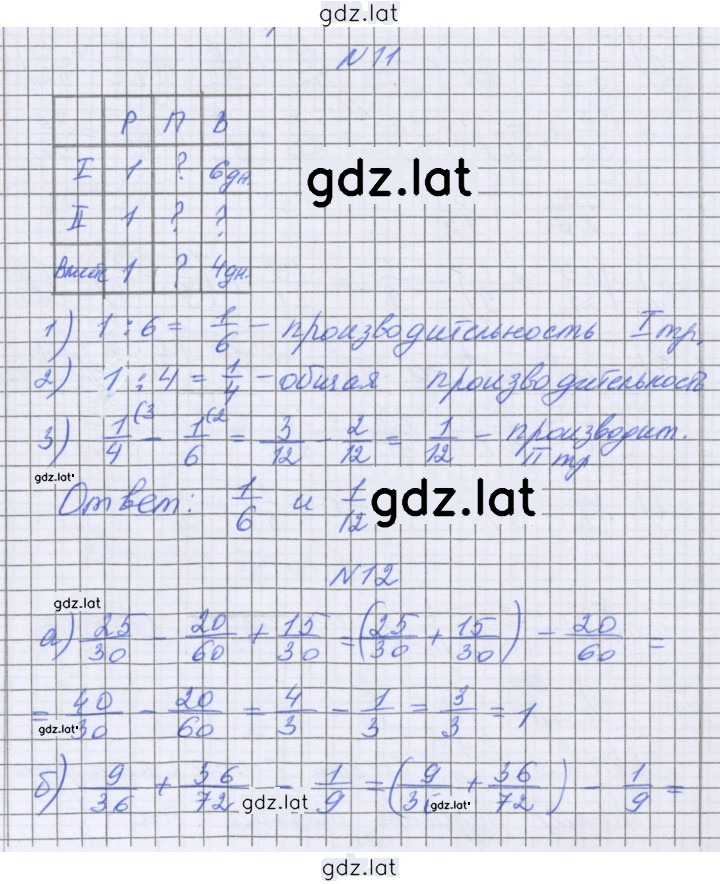 gdz.lat
N11
Р П В
I 1 ? 6дн.
gdz.lat
II 1 ? ?
Вмест 1 ? 4дн.
1) 1 : 6 = 1/6 - производительность I тр.
2) 1 : 4 = 1/4 - общая производительность
3) 1/4 (3 - 1/6 (2 = 3/12 - 2/12 = 1/12 - производит. II тр
gdz.lat
Ответ: 1/6 и 1/12
gdz.lat
N12
gdz.lat
а) 25/30 - 20/60 + 15/30 = (25/30 + 15/30) - 20/60 =
= 40/30 - 20/60 = 4/3 - 1/3 = 3/3 = 1
gdz.lat
б) 9/36 + 36/72 - 1/9 = (9/36 + 36/72) - 1/9 =
gdz.lat
gdz.lat
gdz.lat